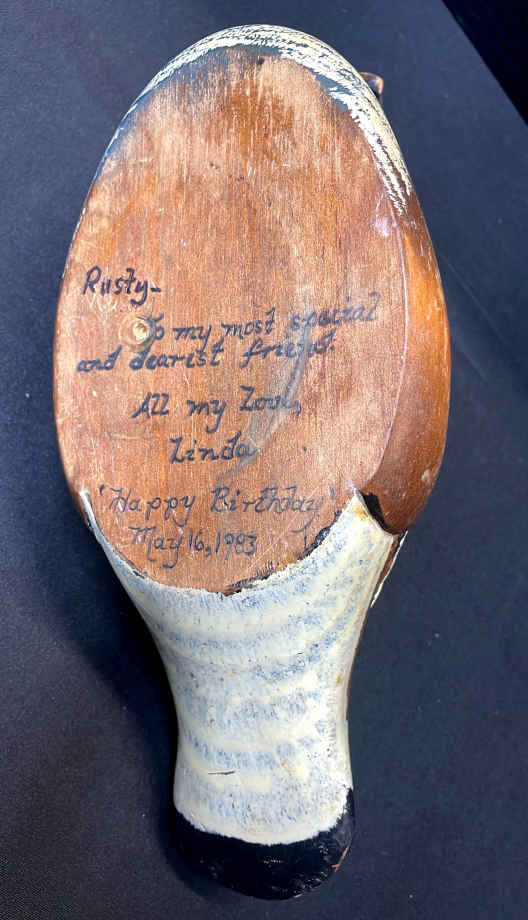 Rusty-
To my most special
and dearist friend.
All my Love,
Linda
"Happy Birthday"
May 16, 1983